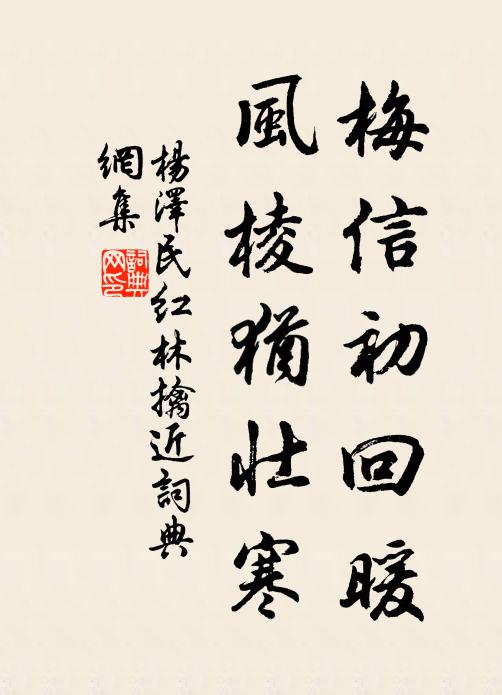 梅信初回暖
風棱猶壯寒
楊澤民紅林擒近詞典
網集
詞典
网印